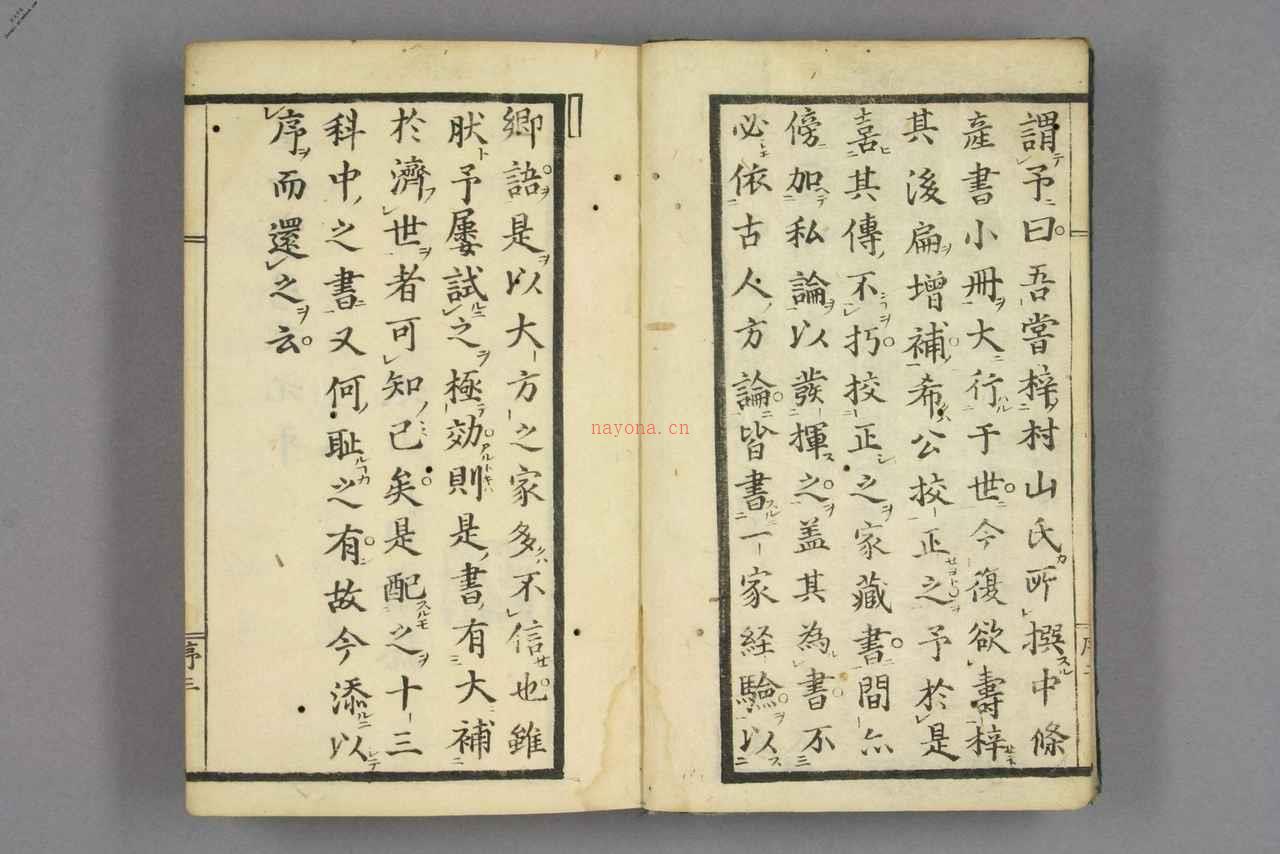 謂予曰吾嘗梓村山氏所撰中條
產書小冊大行于世今復欲壽梓
其後扁增補希公挍正之予於是
喜其傳不朽挍正之家藏書間亦
傍加私論以發揮之盖其為書不
必依古人方論皆書一家経驗以
鄉語是以大方之家多不信也雖
肰予屢試之極効則是書有大補
於濟世者可知已矣是配之十三
科中之書又何耻之有故今添以
序而還之云
序二
序三
nayona.cn